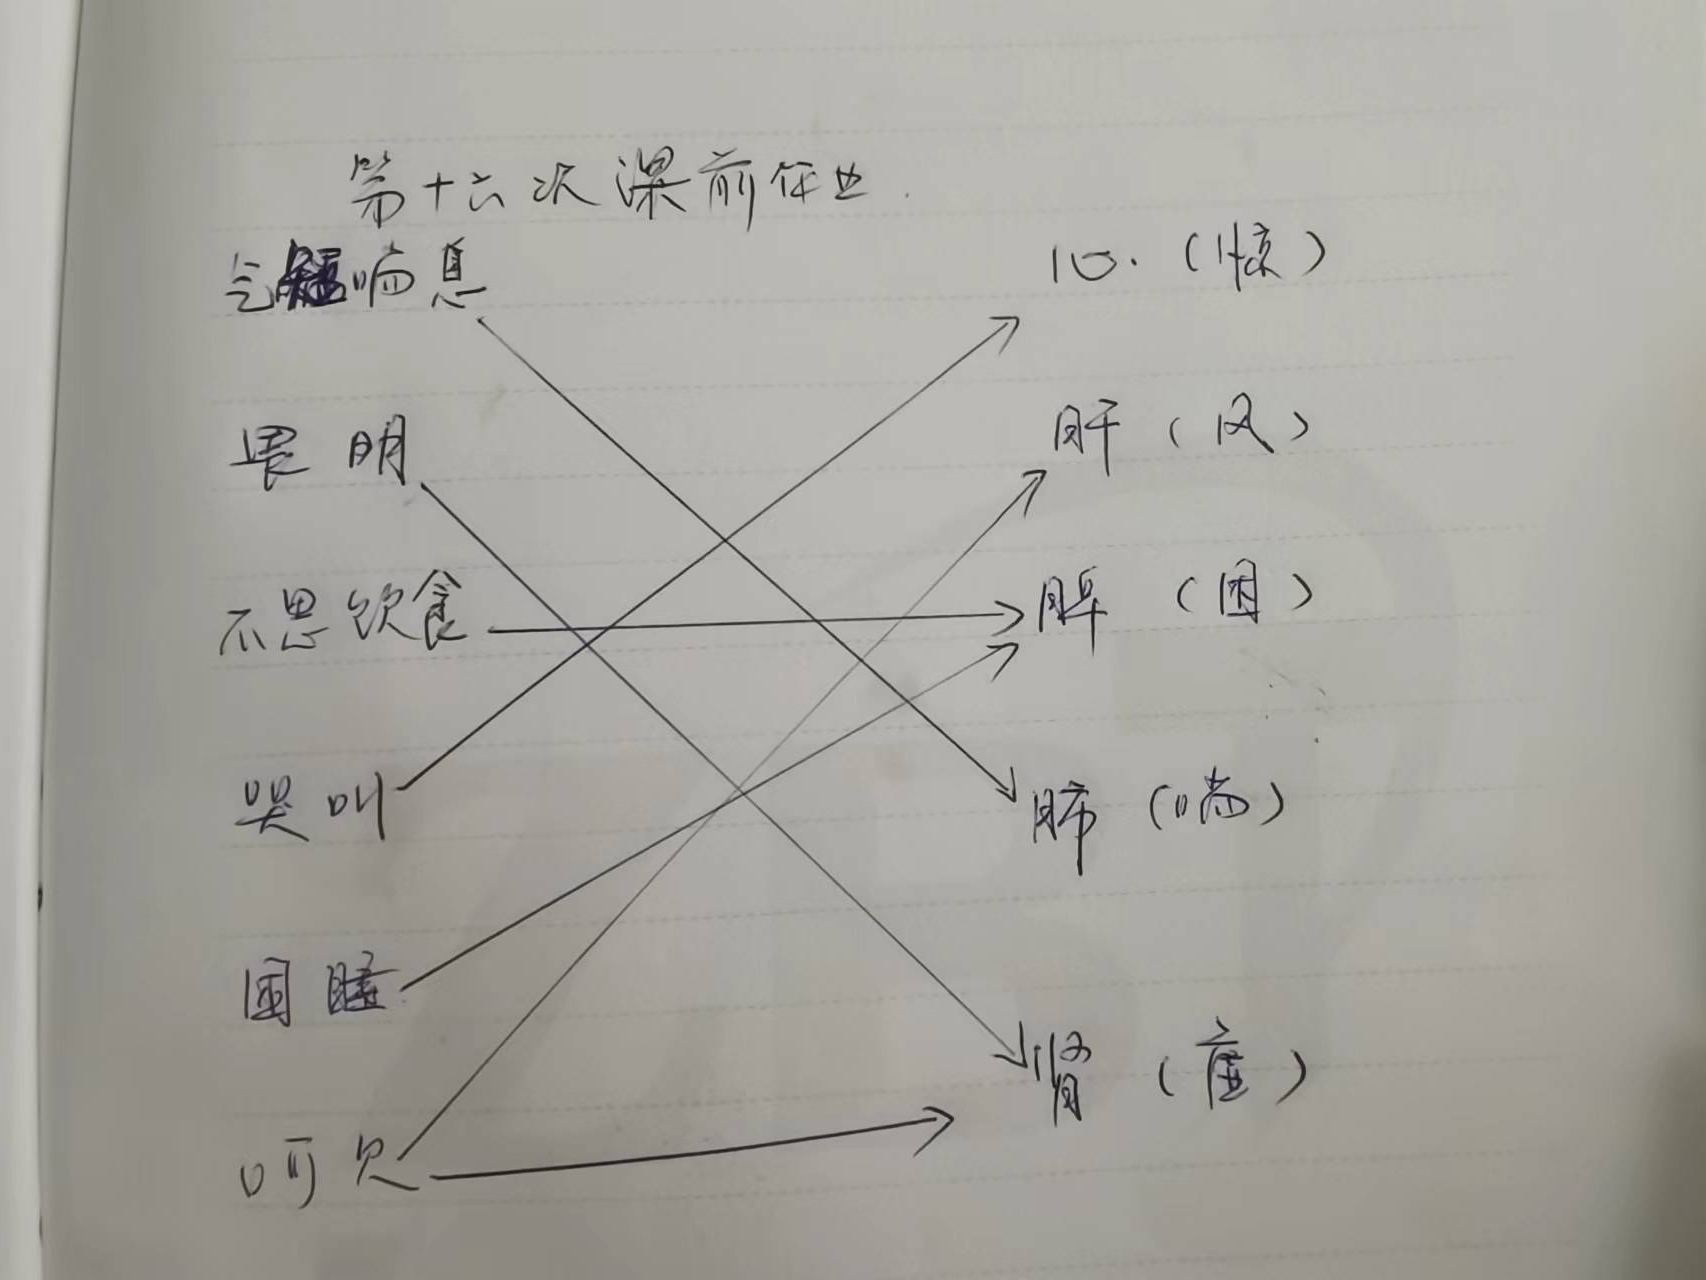 第十六次课前作业.
气短喘息 心.(惊)
畏明 肝(风)
不思饮食 脾(困)
哭叫 肺(喘)
困睡 肾(虚)
呵欠